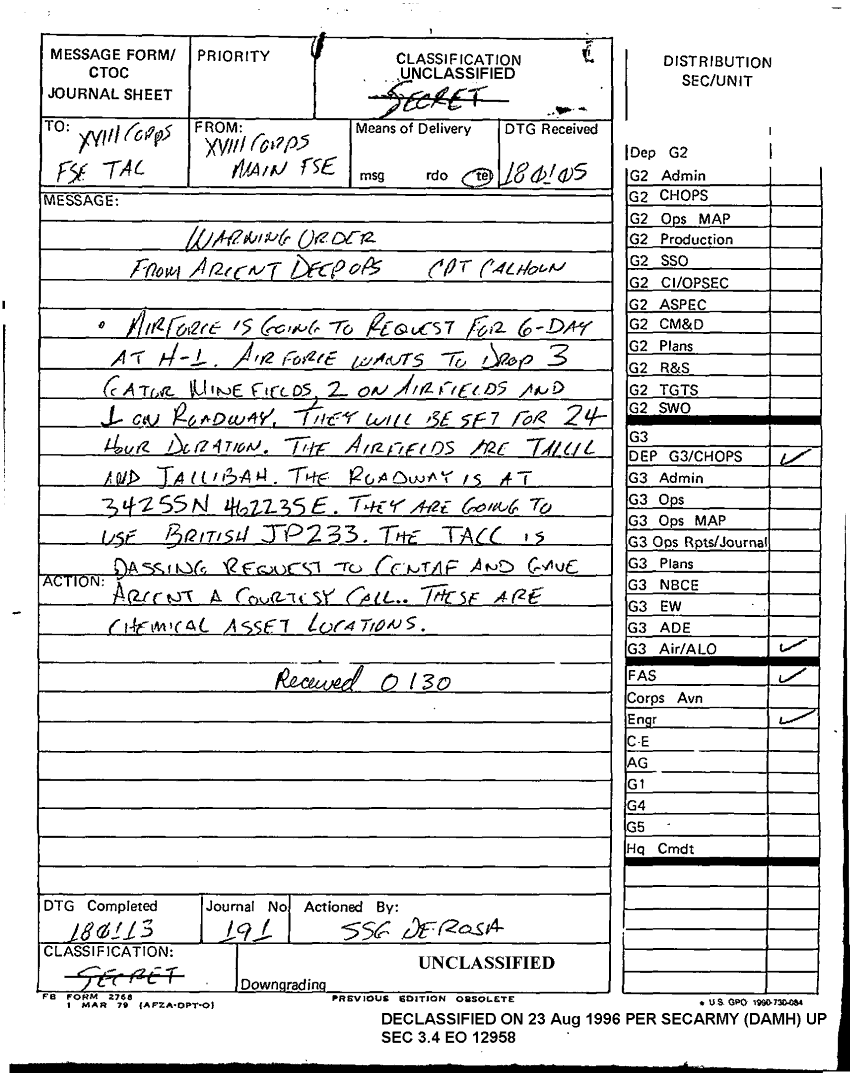 MESSAGE FORM/
CTOC
JOURNAL SHEET
PRIORITY
CLASSIFICATION
UNCLASSIFIED
SECRET
TO: XVIII CORPS
FSE TAC
FROM:
XVIII CORPS
MAIN FSE
Means of Delivery
msg rdo tel
DTG Received
180105
MESSAGE:
WARNING ORDER
FROM ARCENT DEEPOPS CPT CALHOUN
• AIRFORCE IS GOING TO REQUEST FOR G-DAY
AT H-1. AIR FORCE WANTS TO DROP 3
GATOR MINEFIELDS, 2 ON AIRFIELDS AND
1 ON ROADWAY. THEY WILL BE SET FOR 24
HOUR DURATION. THE AIRFIELDS ARE TALLIL
AND JALLIBAH. THE ROADWAY IS AT
34255N 462235E. THEY ARE GOING TO
USE BRITISH JP233. THE TACC IS
PASSING REQUEST TO CENTAF AND GAVE
ACTION:
ARCENT A COURTESY CALL.. THESE ARE
CHEMICAL ASSET LOCATIONS.
Received 0130
DTG Completed
180113
Journal No
191
Actioned By:
SSG DEROSA
CLASSIFICATION:
SECRET
Downgrading
UNCLASSIFIED
FB FORM 2768
1 MAR 79 (AFZA-OPT-O)
PREVIOUS EDITION OBSOLETE
DISTRIBUTION
SEC/UNIT
Dep G2
G2 Admin
G2 CHOPS
G2 Ops MAP
G2 Production
G2 SSO
G2 CI/OPSEC
G2 ASPEC
G2 CM&D
G2 Plans
G2 R&S
G2 TGTS
G2 SWO
G3
DEP G3/CHOPS ✓
G3 Admin
G3 Ops
G3 Ops MAP
G3 Ops Rpts/Journal
G3 Plans
G3 NBCE
G3 EW
G3 ADE
G3 Air/ALO ✓
FAS ✓
Corps Avn
Engr ✓
C-E
AG
G1
G4
G5
Hq Cmdt
* U.S. GPO 1990-730-084
DECLASSIFIED ON 23 Aug 1996 PER SECARMY (DAMH) UP
SEC 3.4 EO 12958